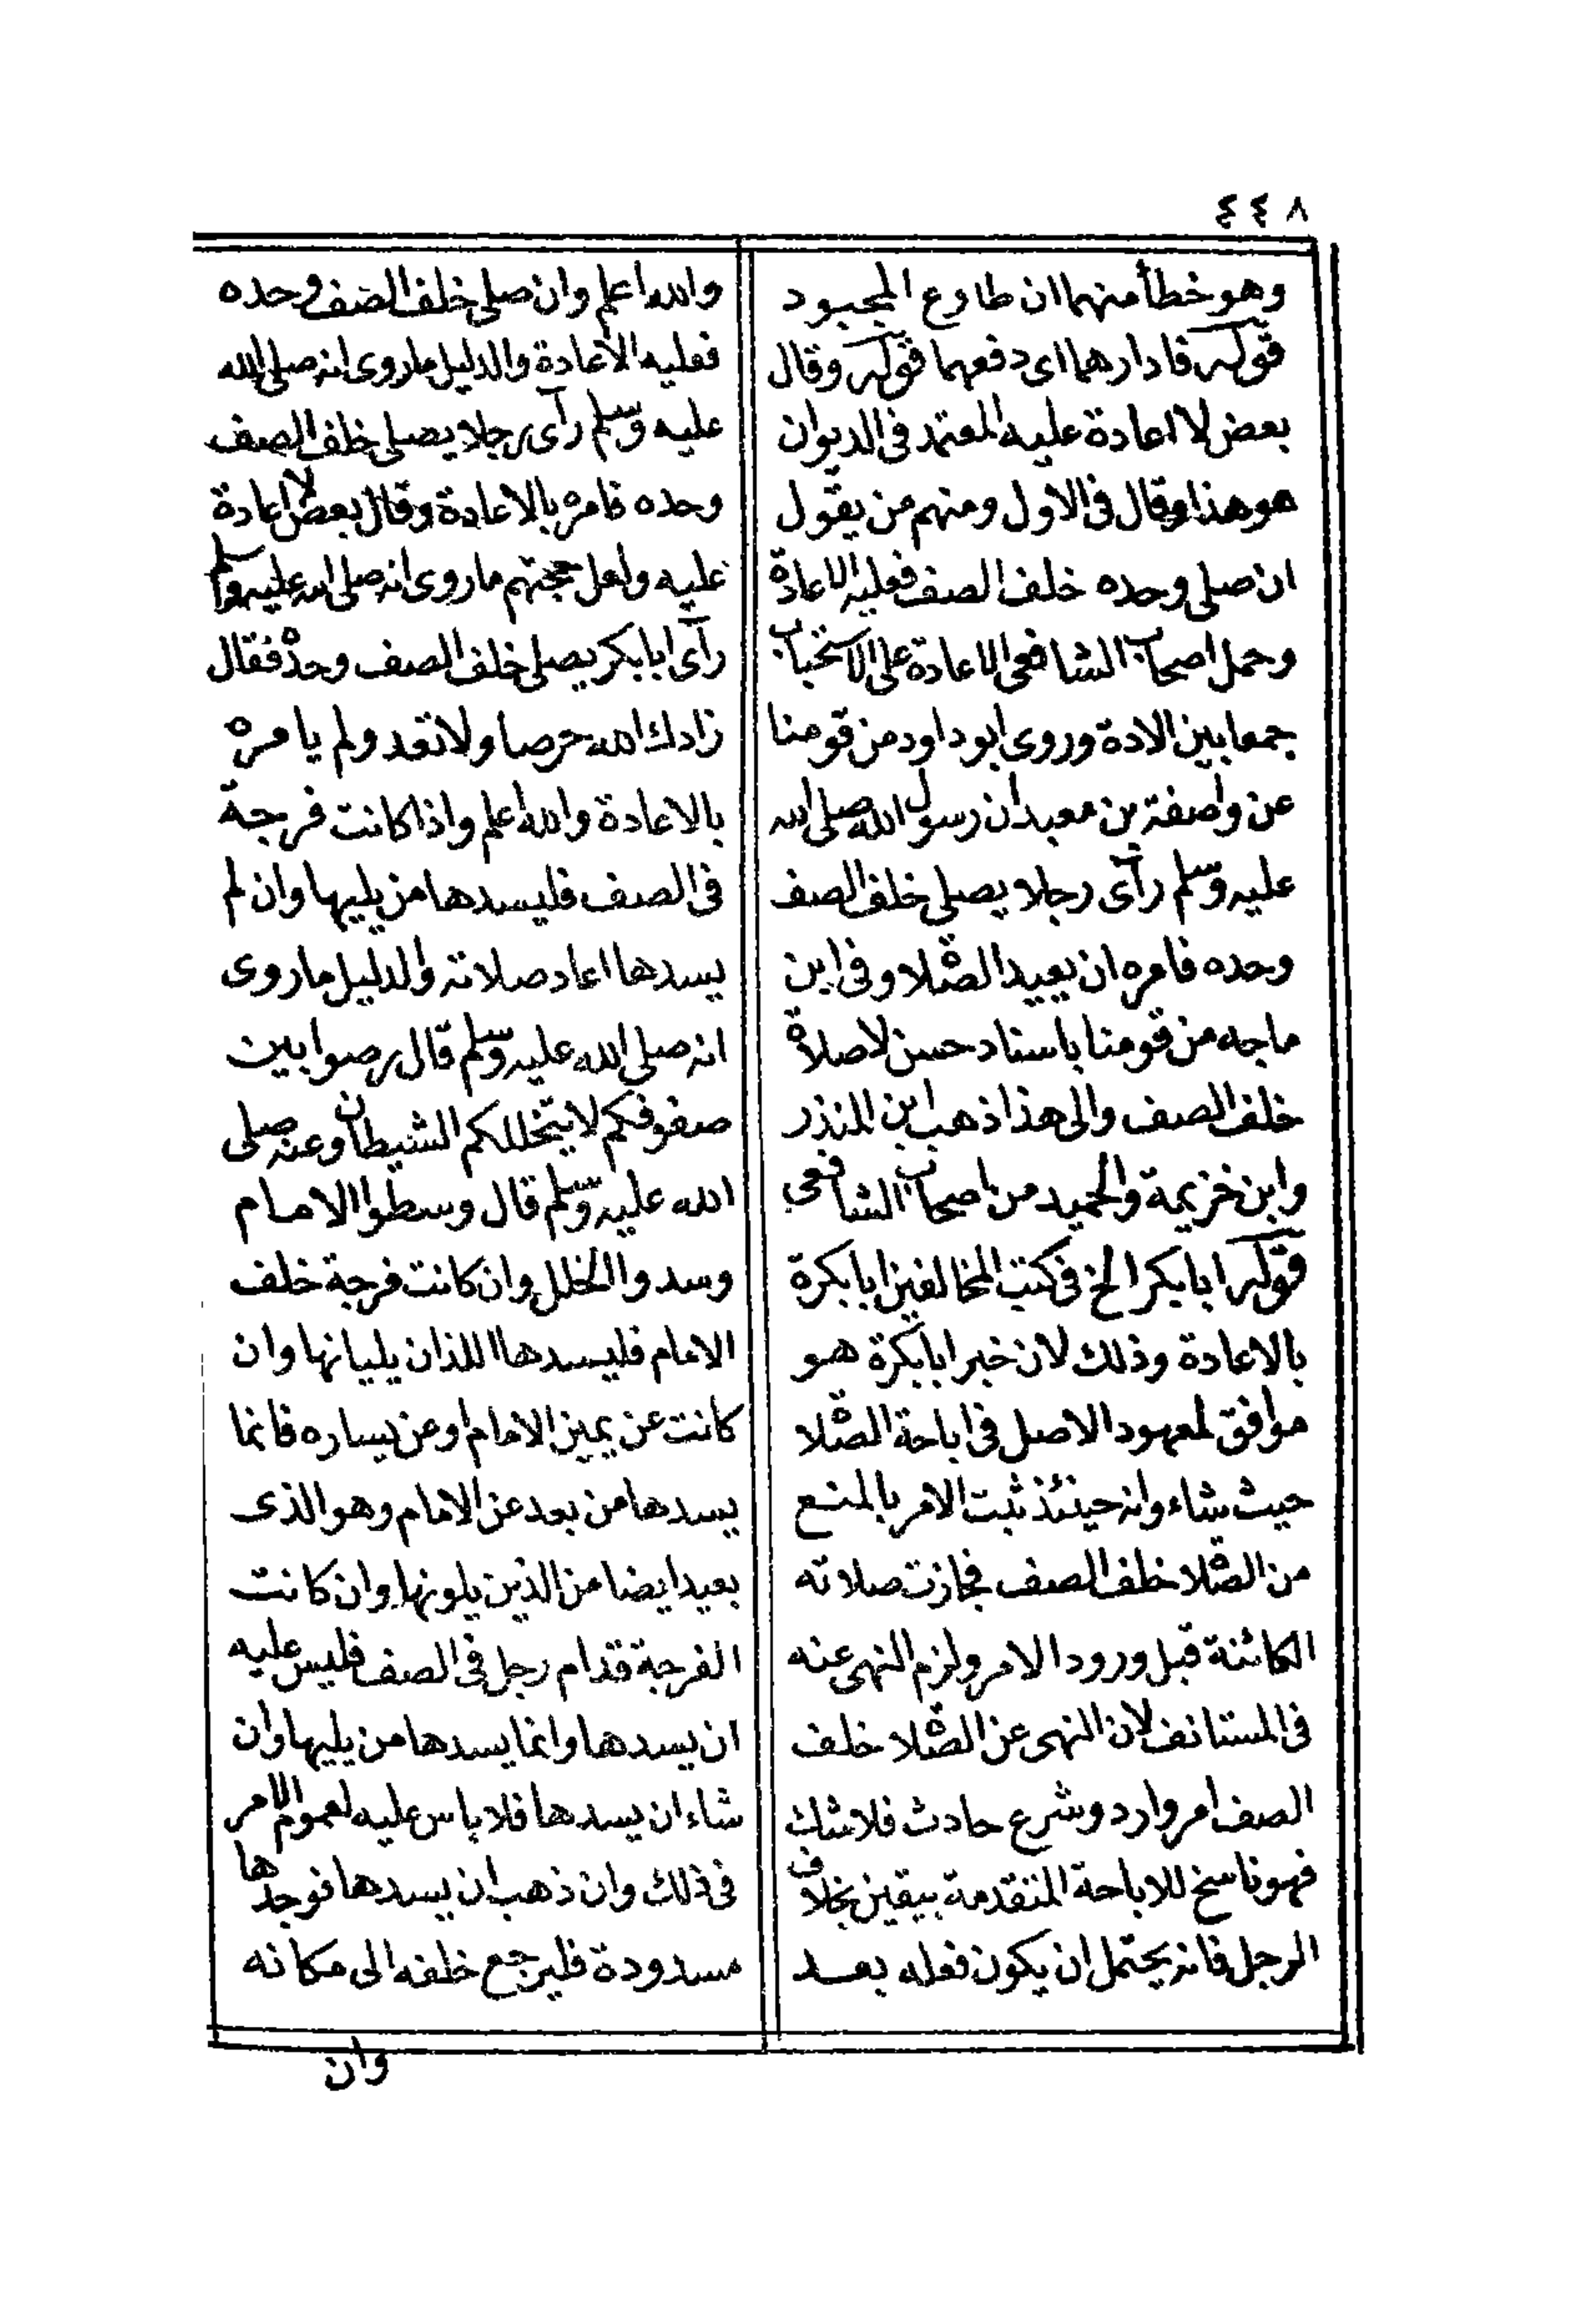 ٤٤٨
وهو خطأ منهما ان طاوع المجبود
قوله فادارهما اى دفعهما قوله وقال
بعض لا اعادة عليه المعتمد فى الديوان
هو هذا وقال فى الاول ومنهم من يقول
ان صلى وحده خلف الصف فعليه الاعادة
وحمل اصحاب الشافعى الاعادة على الاستحباب
جمعا بين الادة وروى ابو داود من قومنا
عن واصفة بن معبد ان رسول الله صلى الله
عليه وسلم رآى رجلا يصلى خلف الصف
وحده فامره ان يعيد الصلاة وفى ابن
ماجه من قومنا باسناد حسن لا صلاة
خلف الصف والى هذا ذهب ابن المنذر
وابن خزيمة والحميد من اصحاب الشافعى
قوله ابا بكر الخ فى كتب المخالفين ابا بكرة
بالاعادة وذلك لان خبر ابا بكرة هو
موافق لمعهود الاصل فى اباحة الصلاة
حيث شاء وانه حينئذ ثبت الامر بالمنع
من الصلاة خلف الصف فجازت صلاته
الكائنة قبل ورود الامر ولزم النهى عنه
فى المستانف لان النهى عن الصلاة خلف
الصف امر وارد وشرع حادث فلا شك
فهو ناسخ للاباحة المتقدمة بيقين بخلاف
الرجل فانه يحتمل ان يكون فعله بعد
والله اعلم وان صلى خلف الصف وحده
فعليه الاعادة والدليل ما روى انه صلى الله
عليه وسلم رآى رجلا يصلى خلف الصف
وحده فامره بالاعادة وقال بعض لا اعادة
عليه ولعل حجتهم ما روى انه صلى الله عليه وسلم
رآى ابا بكر يصلى خلف الصف وحده فقال
زادك الله حرصا ولا تعد ولم يامره
بالاعادة والله اعلم واذا كانت فرجة
فى الصف فليسدها من يليها وان لم
يسدها اعاد صلاته والدليل ما روى
انه صلى الله عليه وسلم قال رصوا بين
صفوفكم لا يتخللكم الشيطان وعنه صلى
الله عليه وسلم قال وسطوا الامام
وسدوا الخلل وان كانت فرجة خلف
الامام فليسدها اللذان يليانها وان
كانت عن يمين الامام او عن يساره فانما
يسدها من بعد عن الامام وهو الذى
بعيد ايضا من الذين يلونها وان كانت
الفرجة قدام رجل فى الصف فليس عليه
ان يسدها وانما يسدها من يليها وان
شاء ان يسدها فلا باس عليه لعموم الامر
فى ذلك وان ذهب ان يسدها فوجدها
مسدودة فليرجع خلفه الى مكانه
وان